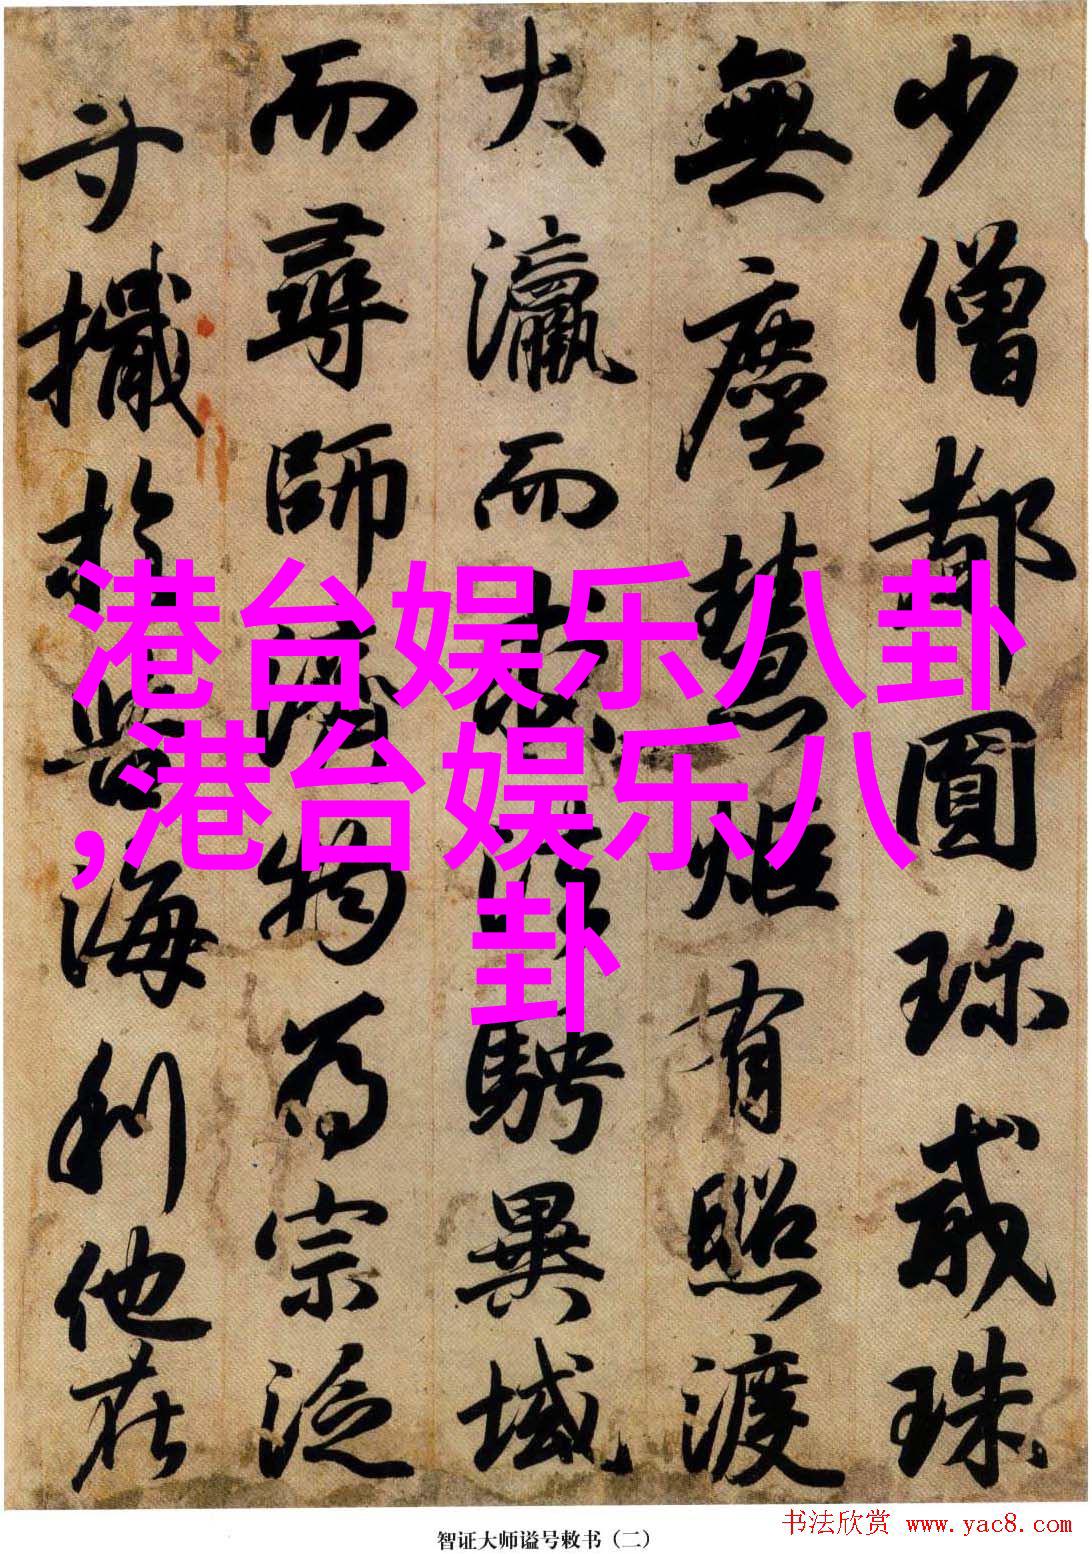 少僧都圓珎戒珠
無塵慧炬有照渡
大瀛而
騁異域
而尋師濟物為宗泛
寸檝於苦海利他在
港台娱乐八卦
,港台娱乐八
卦
智证大师谥号敕书（二）
书法欣赏 www.yac8.com